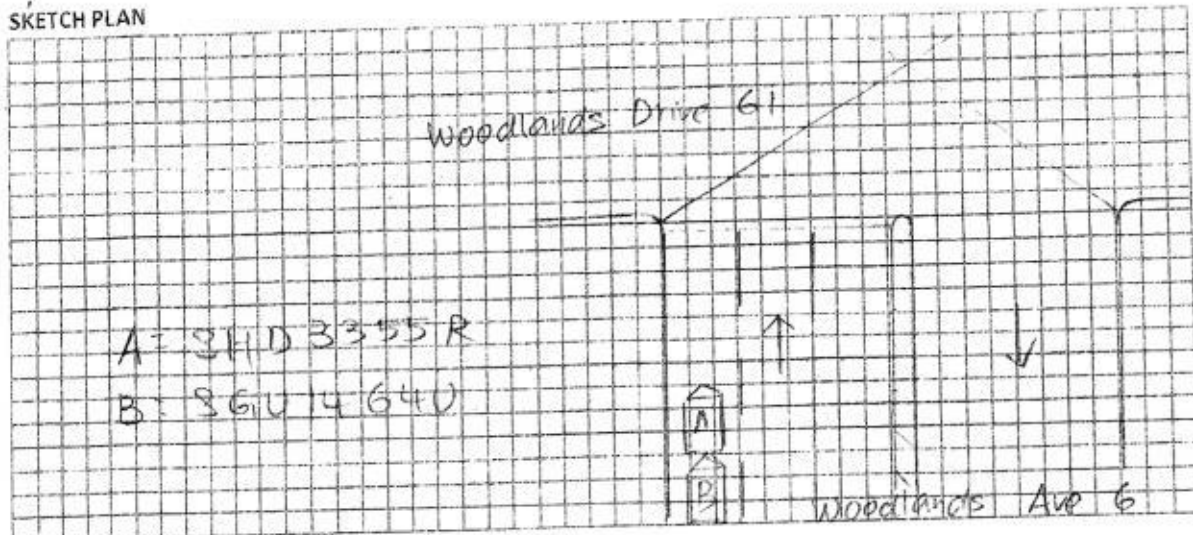 SKETCH PLAN
Woodlands Drive 61
A = SHD 3355 R
B = SGU 1464U
A
B
Woodlands Ave 6